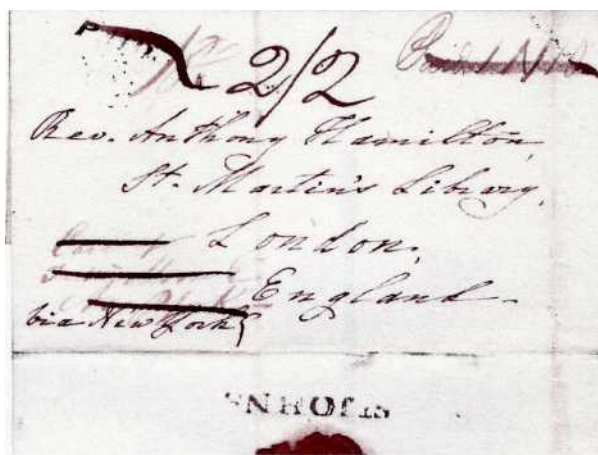 2/2
Paid
Rev. Anthony Hamilton,
St. Martin's Library,
London,
England.
via New York
ST JOHNS